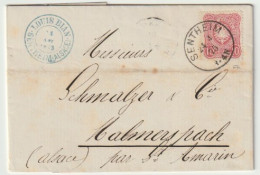 LOUIS BIAN
SENTHEIM
Messieurs
Schmalzer & Cie
Malmerspach
(alsace) par St Amarin